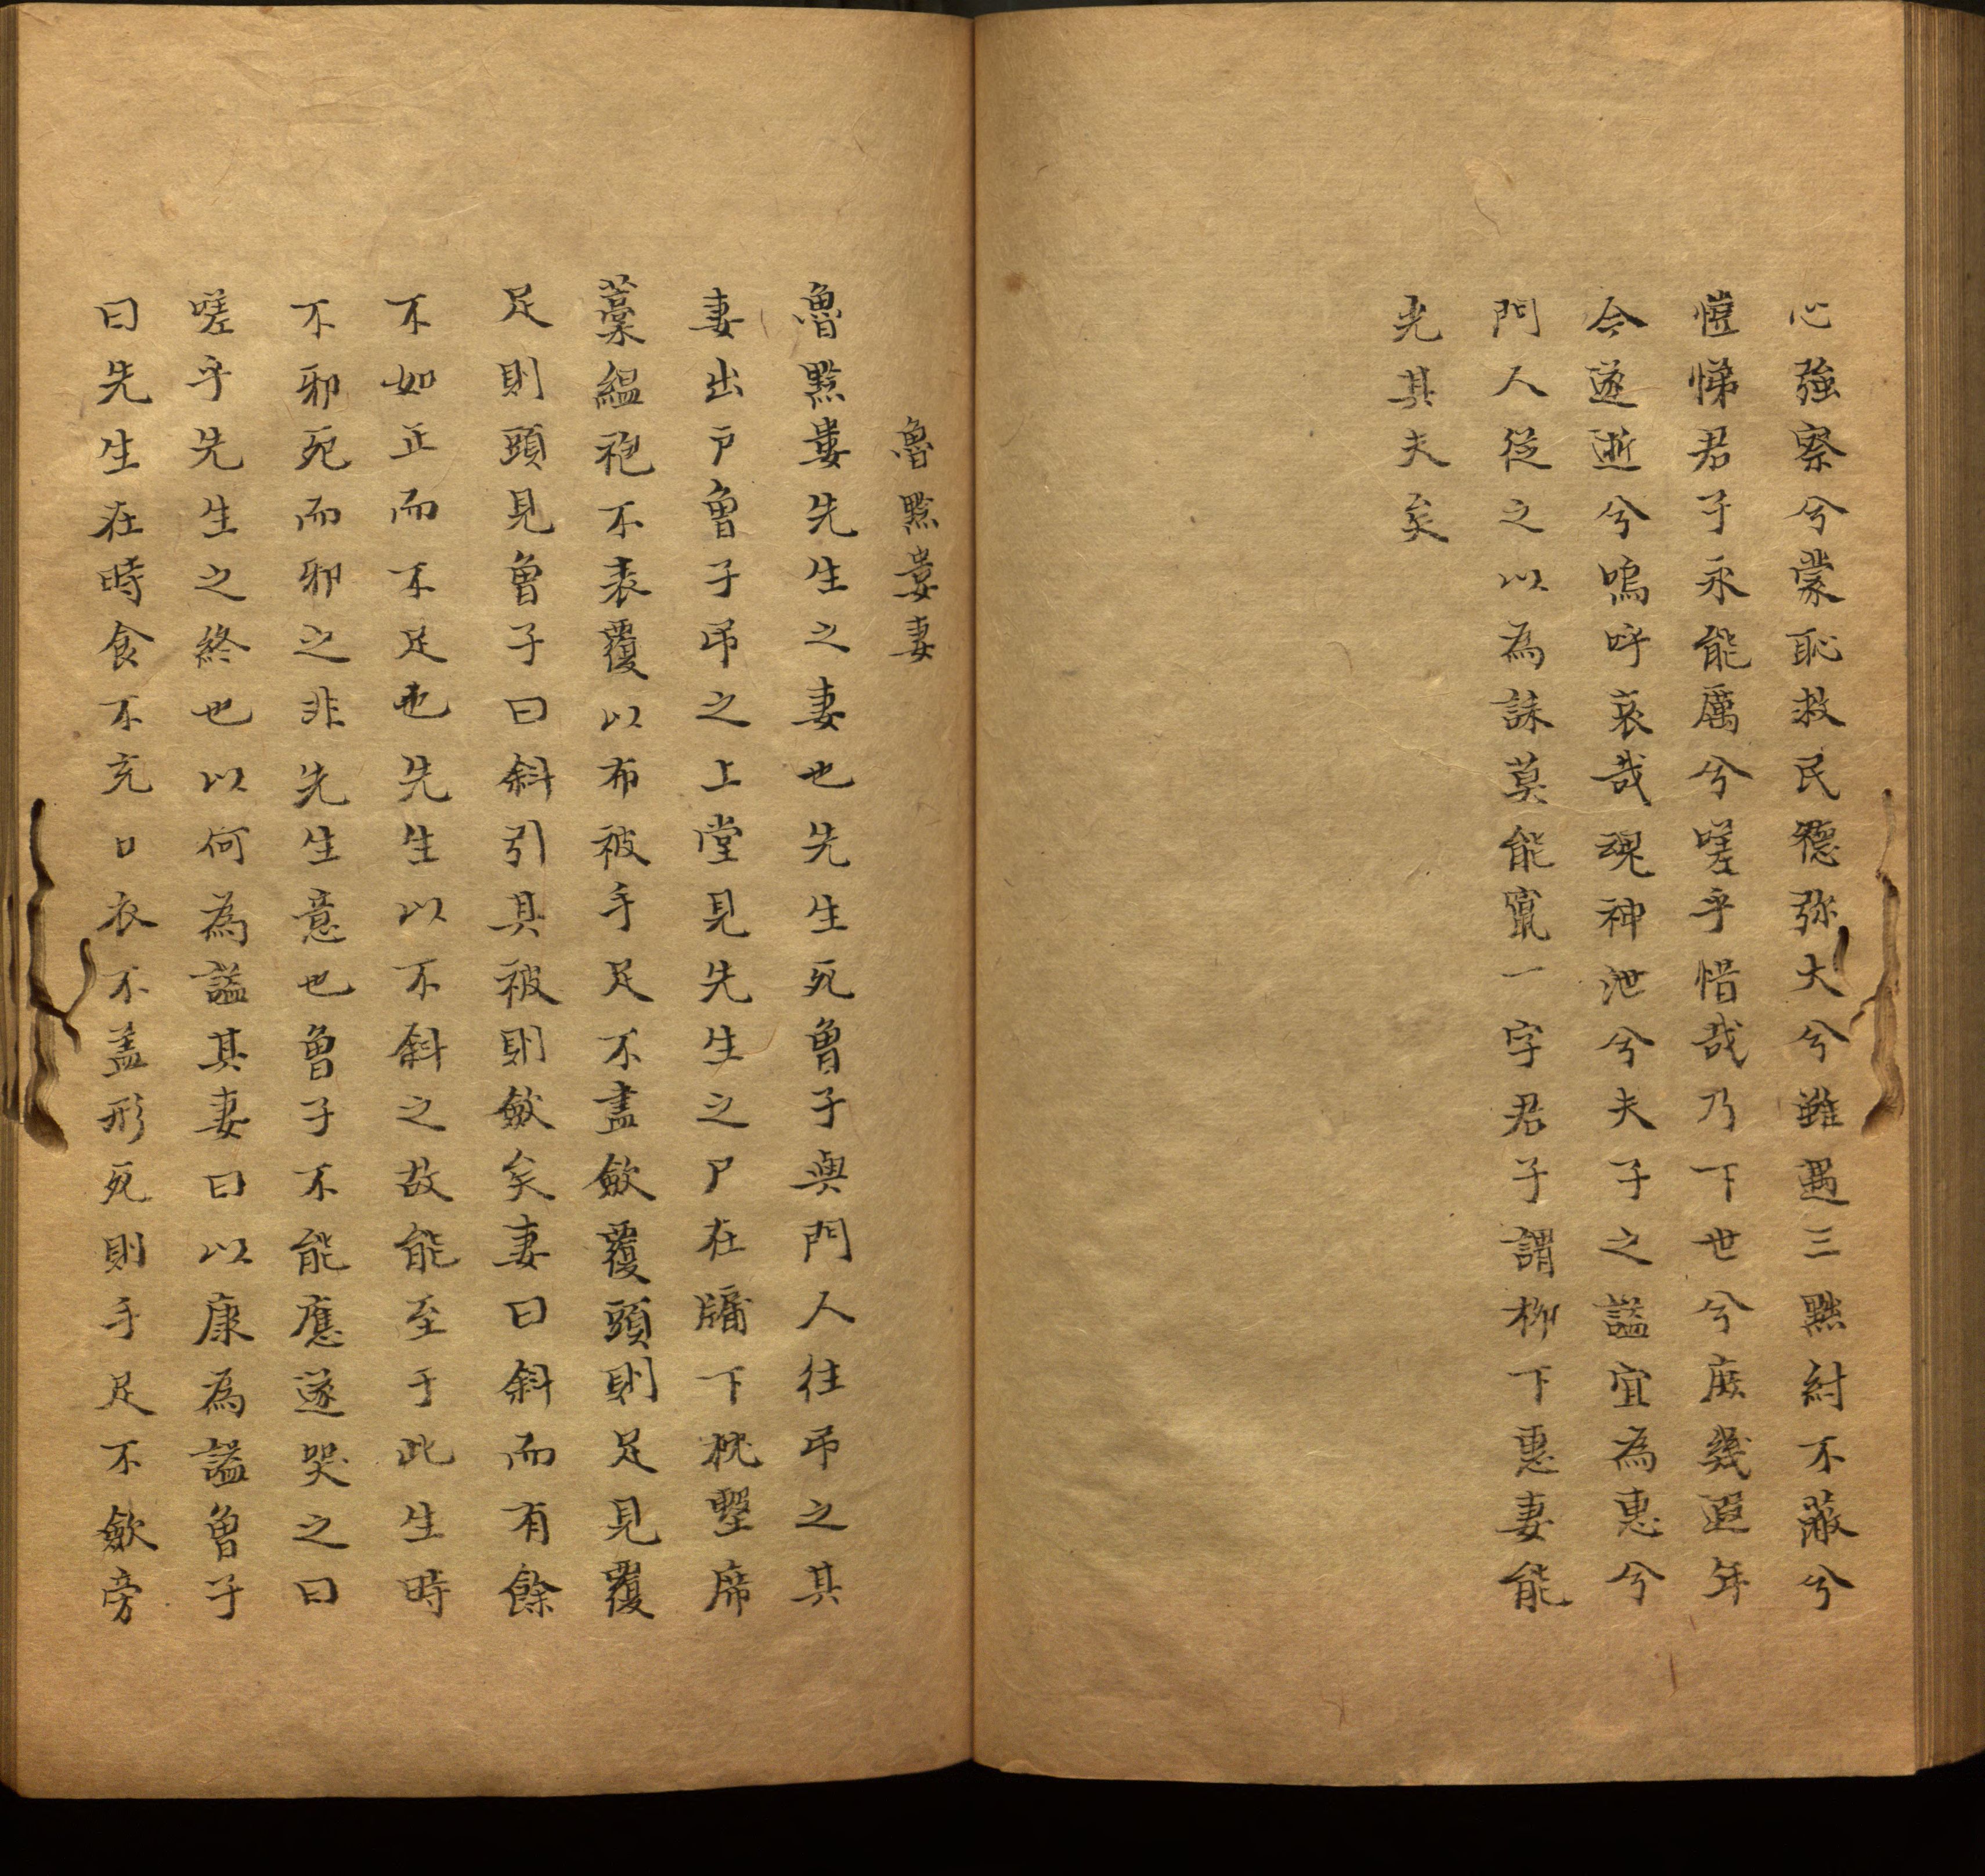 心強察兮蒙恥救民德弥大兮雖遇三黜紂不蔽兮
愷悌君子永能厲兮嗟乎惜哉乃下世兮庶幾遐年
今遂逝兮嗚呼哀哉魂神泄兮夫子之謚宜為惠兮
門人從之以為誄莫能竄一字君子謂柳下惠妻能
光其夫矣
魯黔婁妻
魯黔婁先生之妻也先生死曾子與門人往吊之其
妻出戶曾子吊之上堂見先生之尸在牖下枕墼席
藁緼袍不表覆以布被手足不盡斂覆頭則足見覆
足則頭見曾子曰斜引其被則斂矣妻曰斜而有餘
不如正而不足也先生以不斜之故能至于此生時
不邪死而邪之非先生意也曾子不能應遂哭之曰
嗟乎先生之終也以何為謚其妻曰以康為謚曾子
曰先生在時食不充口衣不盖形死則手足不斂旁